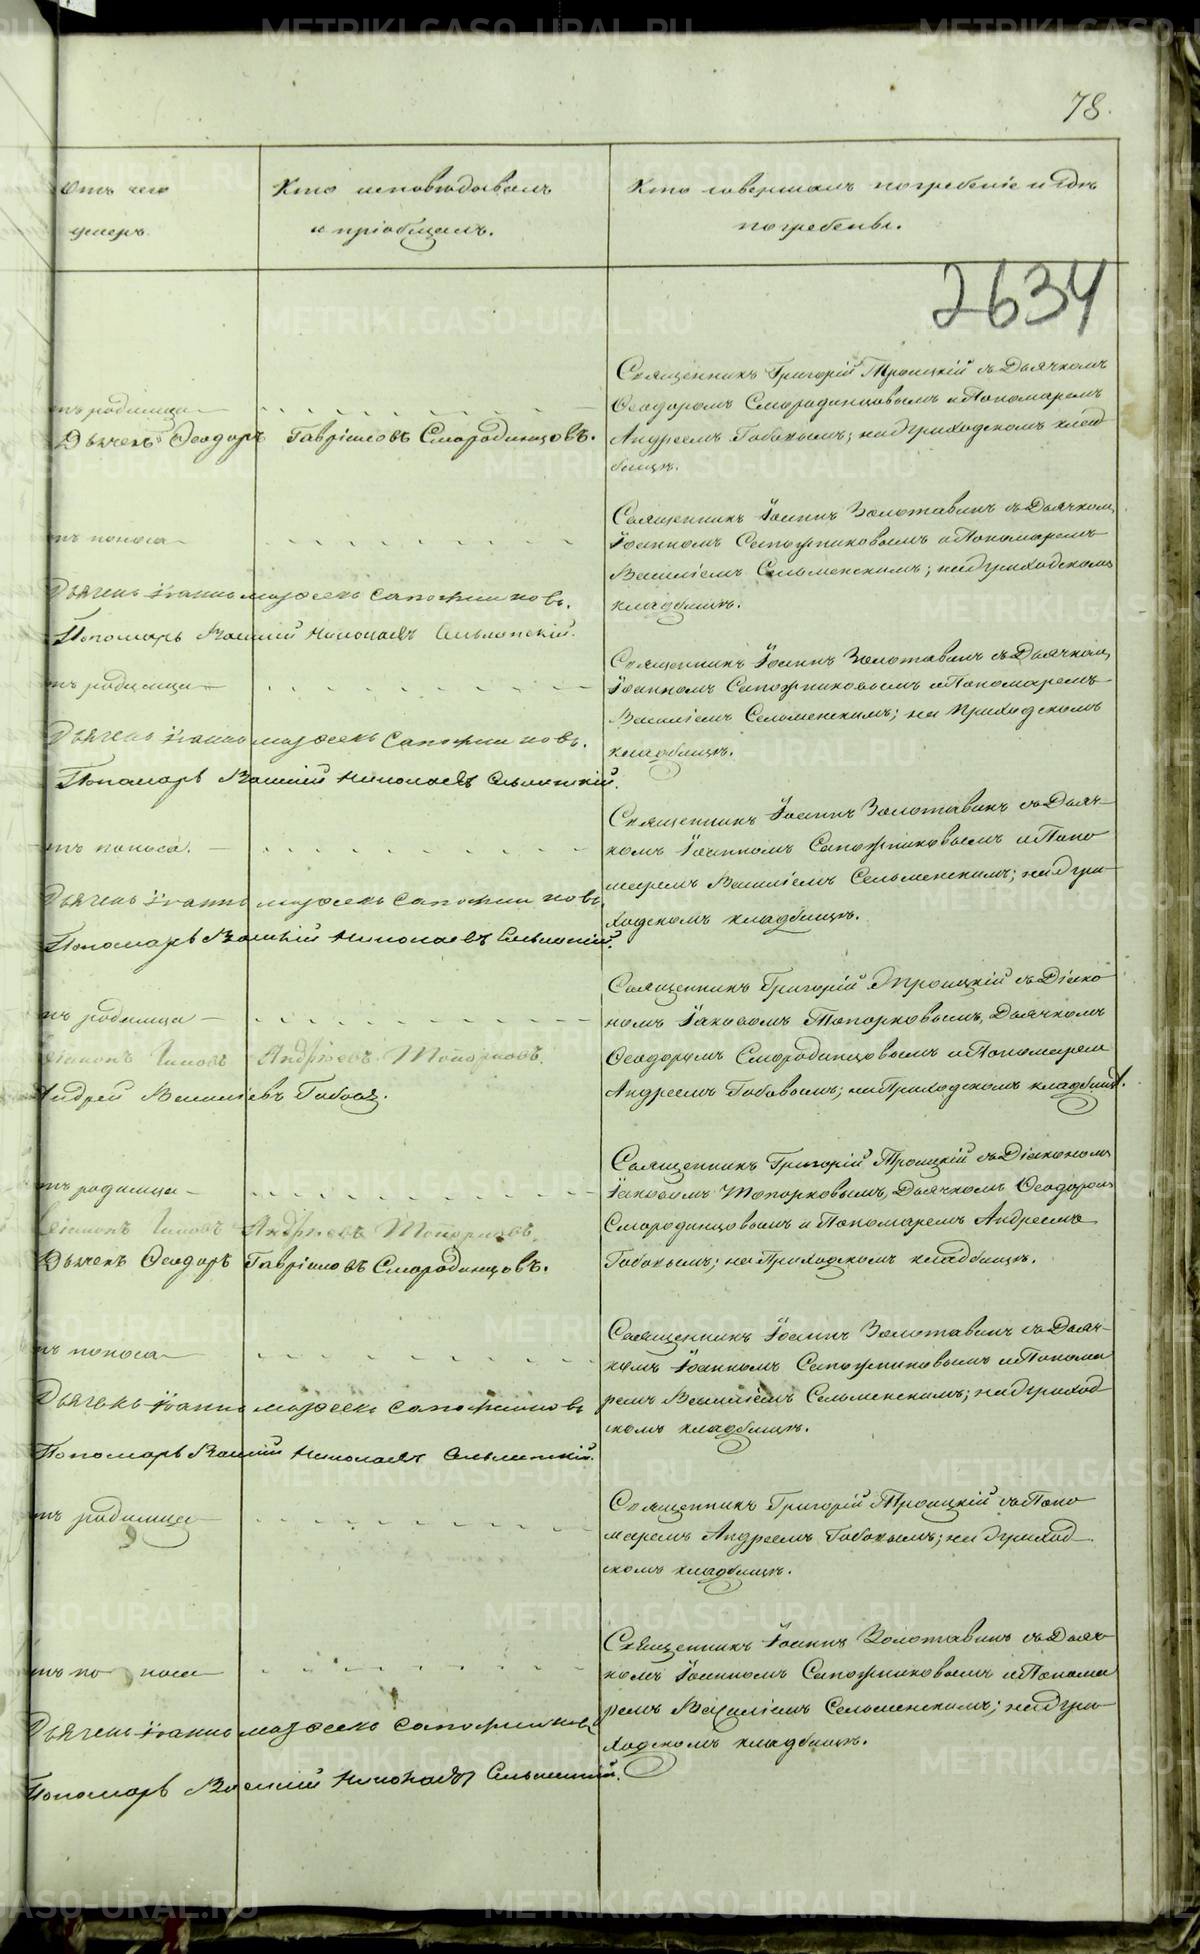 78.
Отъ чего
умеръ.
Кто исповѣдывалъ
и пріобщалъ.
Кто совершалъ погребеніе и гдѣ
погребены.
2634
отъ родимца
Дьячекъ Ѳеодоръ Гавріиловъ Смородинцовъ.
Священникъ Григорій Троицкій съ Дьячкомъ
Ѳеодоромъ Смородинцовымъ и Пономаремъ
Андреемъ Бабовымъ; на приходскомъ клад
бищѣ.
отъ поноса
Дьячекъ Іоаннъ Сапожниковъ.
Пономарь Василій Николаевъ Сельменскій.
Священникъ Іоаннъ Золотавинъ съ Дьячкомъ
Іоанномъ Сапожниковымъ и Пономаремъ
Василіемъ Сельменскимъ; на приходскомъ
кладбищѣ.
отъ родимца
Дьячекъ Іоаннъ Сапожниковъ.
Пономарь Василій Николаевъ Сельменскій.
Священникъ Іоаннъ Золотавинъ съ Дьячкомъ
Іоанномъ Сапожниковымъ и Пономаремъ
Василіемъ Сельменскимъ; на Приходскомъ
кладбищѣ.
отъ поноса.
Дьячекъ Іоаннъ Сапожниковъ.
Пономарь Василій Николаевъ Сельменскій.
Священникъ Іоаннъ Золотавинъ съ Дьяч-
комъ Іоанномъ Сапожниковымъ и Поно
маремъ Василіемъ Сельменскимъ; на при-
ходскомъ кладбищѣ.
отъ родимца
Діаконъ Іаковъ Андреевъ Топорковъ.
Андрей Василіевъ
Священникъ Григорій Троицкій съ Діако
номъ Іаковомъ Топорковымъ, Дьячкомъ
Ѳеодоромъ Смородинцовымъ и Пономарем
Андреемъ Бабовымъ; на Приходскомъ кладбищѣ.
отъ родимца
Діаконъ Іаковъ Андреевъ Топорковъ.
Дьячекъ Ѳеодоръ Гавріиловъ Смородинцовъ.
Священникъ Григорій Троицкій съ Діакономъ
Іаковомъ Топорковымъ, Дьячкомъ Ѳеодором
Смородинцовымъ и Пономаремъ Андреемъ
Бабовымъ; на Приходскомъ кладбищѣ.
отъ поноса
Дьячекъ Іоаннъ Сапожниковъ
Пономарь Василій Николаевъ Сельменскій.
Священникъ Іоаннъ Золотавинъ съ Дьяч-
комъ Іоанномъ Сапожниковымъ и Понома
ремъ Василіемъ Сельменскимъ; на приход-
скомъ кладбищѣ.
отъ родимца
Священникъ Григорій Троицкій съ Поно
маремъ Андреемъ Бабовымъ; на приход
скомъ кладбищѣ.
отъ поноса
Дьячекъ Іоаннъ Сапожниковъ
Пономарь Василій Николаевъ Сельменскій.
Священникъ Іоаннъ Золотавинъ съ Дьяч
комъ Іоанномъ Сапожниковымъ и Понома
ремъ Василіемъ Сельменскимъ; на при-
ходскомъ кладбищѣ.
METRIKI.GASO-URAL.RU